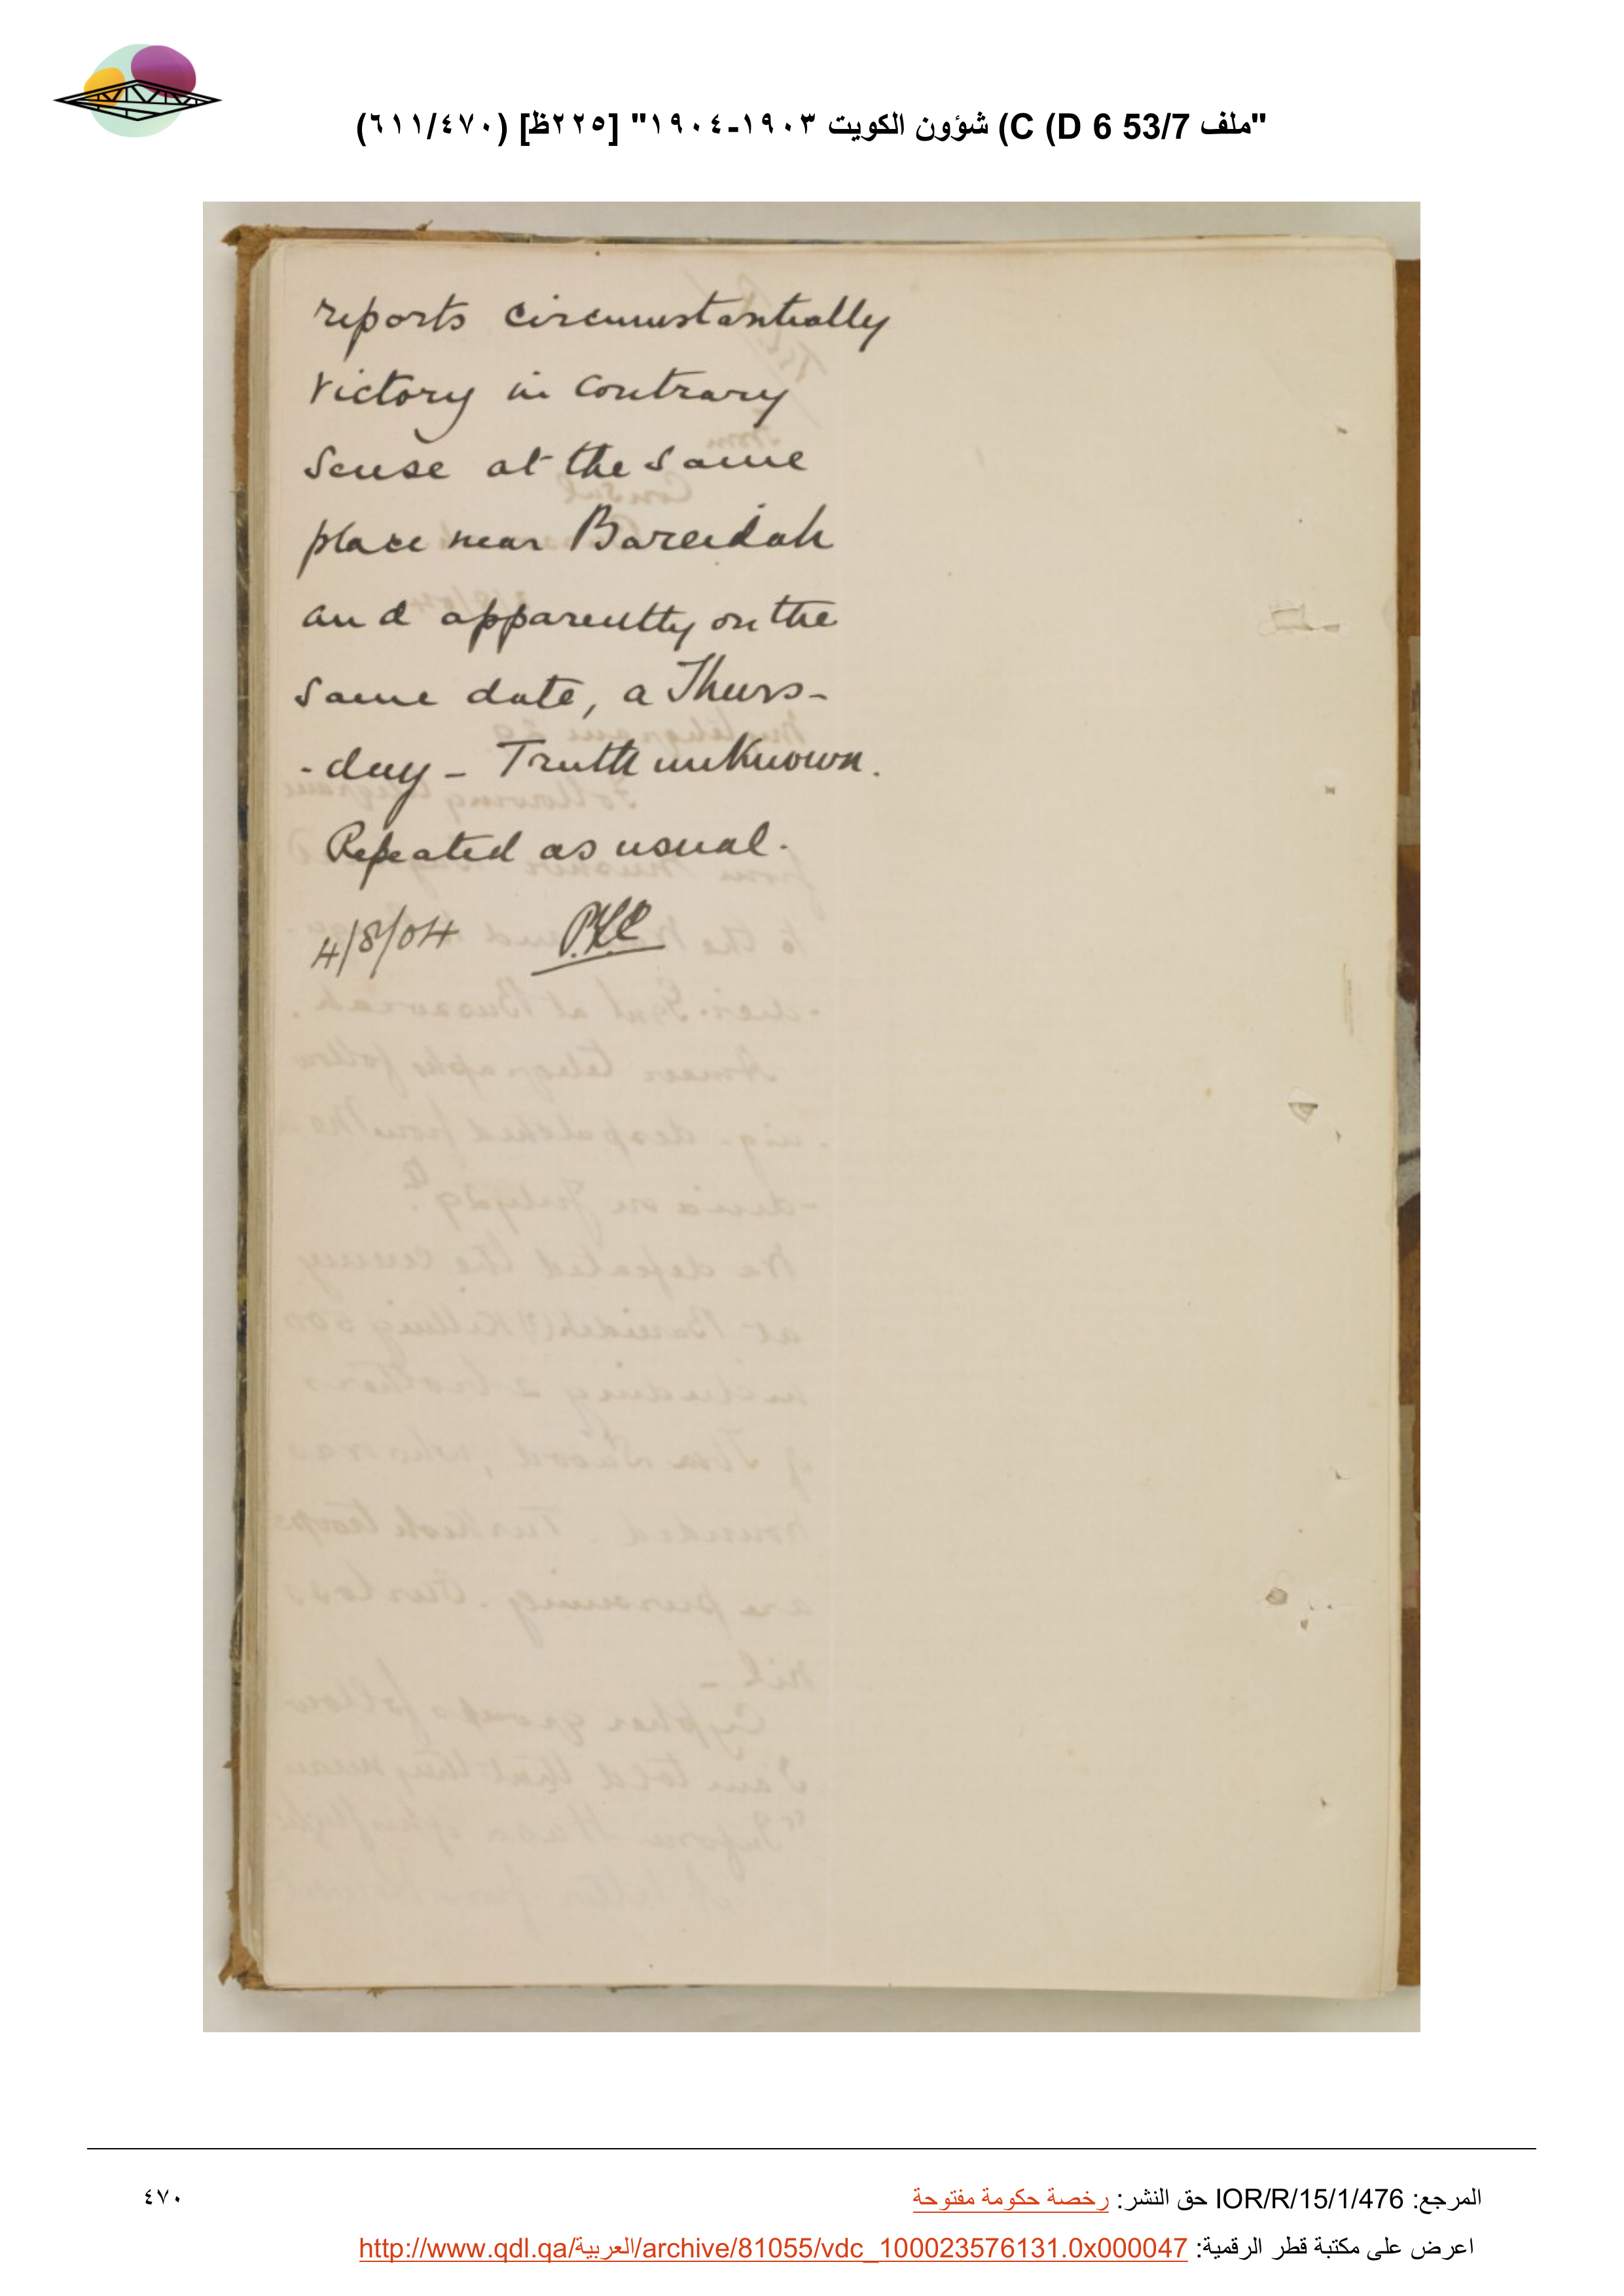 "ملف 53/7 C (D 6) شؤون الكويت ١٩٠٣-١٩٠٤" [٢٢٥ظ] (٤٧٠/٦١١)
reports circumstantially
victory in contrary
sense at the same
place near Bareidah
and apparently on the
same date, a Thurs-
-day - Truth unknown.
Repeated as usual.
4/8/04 P.Z.C
المرجع: IOR/R/15/1/476 حق النشر: رخصة حكومة مفتوحة
٤٧٠
اعرض على مكتبة قطر الرقمية: http://www.qdl.qa/العربية/archive/81055/vdc_100023576131.0x000047